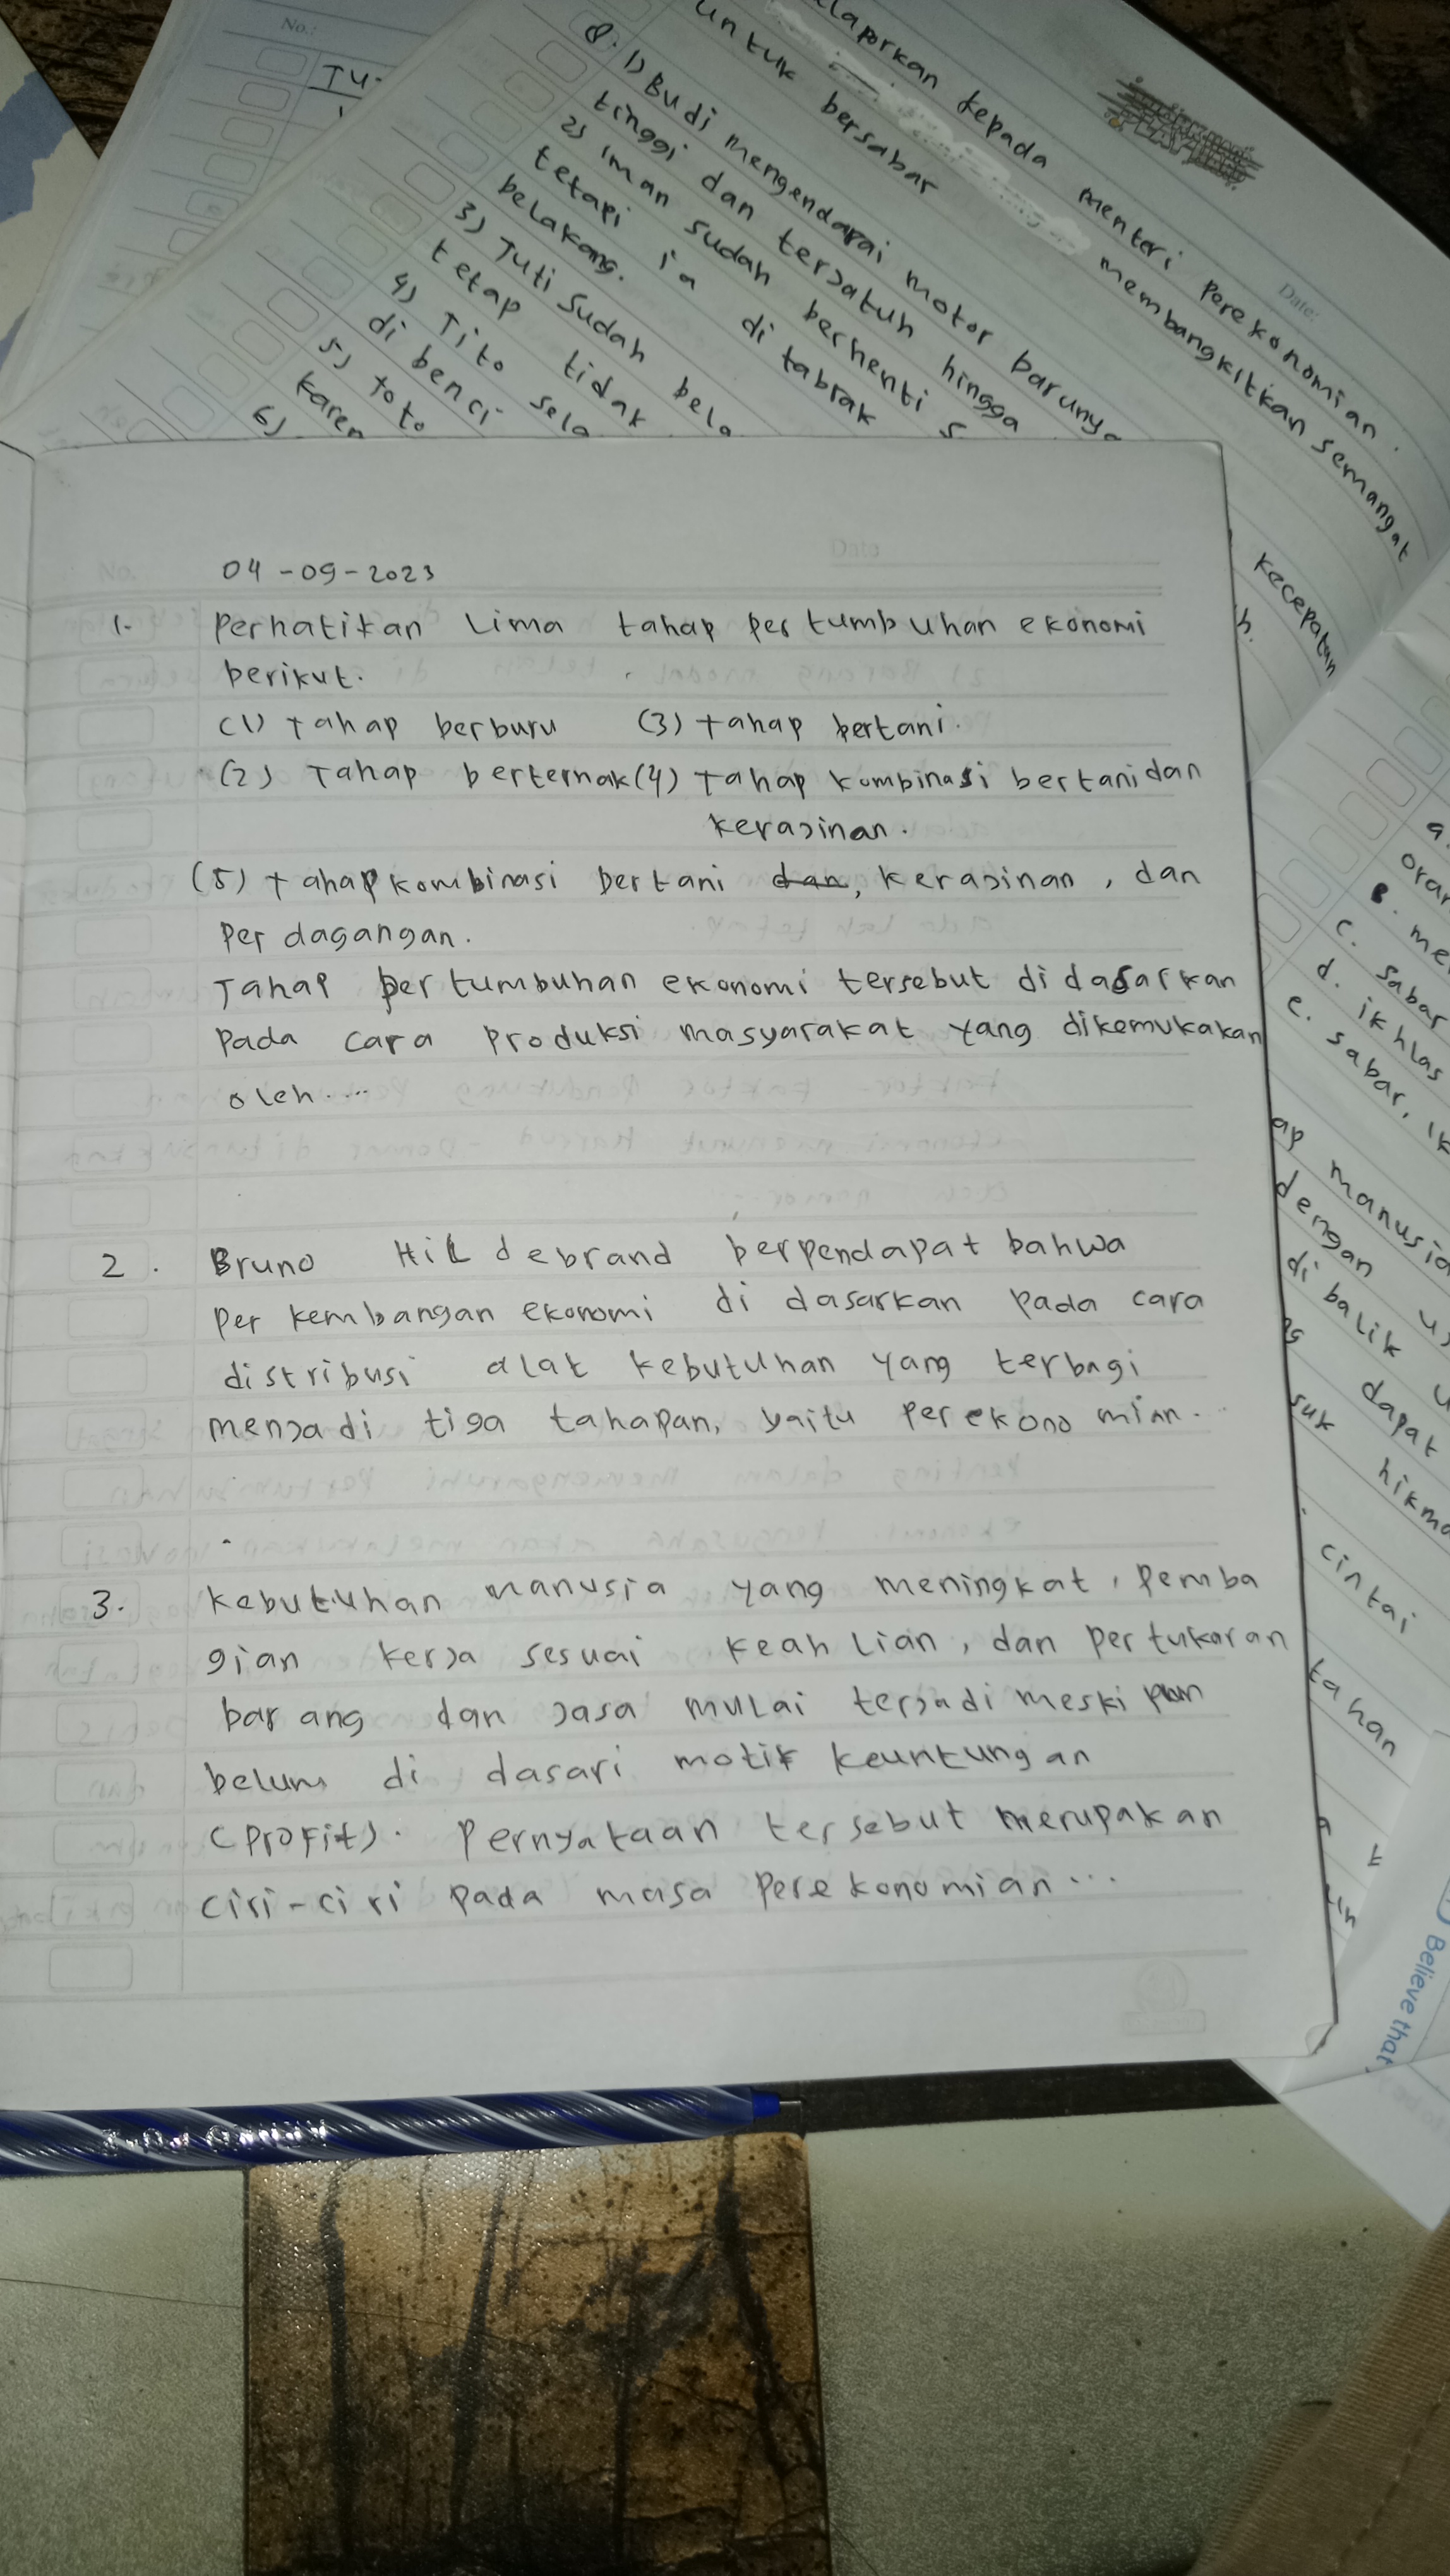 No.:
Tu-
laporkan kepada menteri perekonomian.
untuk bersabar membangkitkan semangat
Date:
8. 1) Budi mengendarai motor barunya kecepatan
tinggi dan terjatuh hingga
2) Iman sudah berhenti
tetapi ia di tabrak
belakang.
3) Tuti sudah
tetap tidak
4) Tito
di benci
5) toto
6)
No. 04-09-2023 Date
1. Perhatikan Lima tahap pertumbuhan ekonomi
berikut.
(1) tahap berburu (3) tahap bertani.
(2) Tahap berternak (4) Tahap kombinasi bertani dan
kerajinan.
(5) tahap kombinasi bertani dan, kerajinan, dan
Perdagangan.
Tahap pertumbuhan ekonomi tersebut di dasarkan
pada cara produksi masyarakat yang dikemukakan
oleh....
2. Bruno Hildebrand berpendapat bahwa
Perkembangan ekonomi di dasarkan pada cara
distribusi alat kebutuhan yang terbagi
menjadi tiga tahapan, yaitu perekonomian..
3. kebutuhan manusia yang meningkat, pemba
gian kerja sesuai keahlian, dan pertukaran
barang dan jasa mulai terjadi meski pun
belum di dasari motif keuntungan
(profit). Pernyataan tersebut merupakan
ciri-ciri pada masa perekonomian...
a.
B.
c. sabar
d. ikhlas
e. sabar,
manusia
dengan
di balik
dapat
cintai
tahan
Believe that